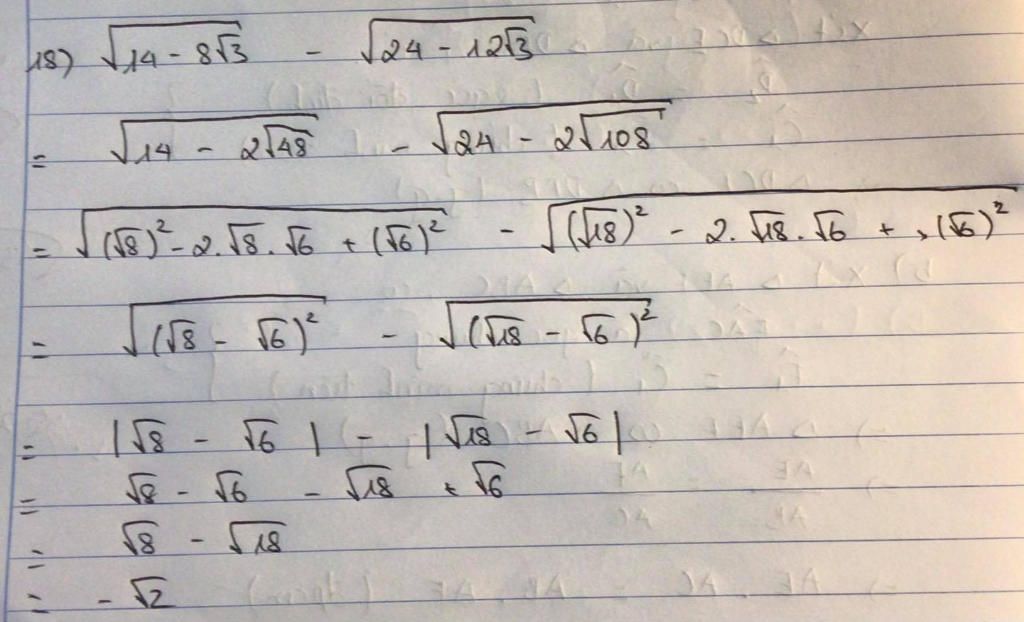 18) √(14 - 8√3) - √(24 - 12√3)
= √(14 - 2√48) - √(24 - 2√108)
= √((√8)² - 2.√8.√6 + (√6)²) - √((√18)² - 2.√18.√6 + (√6)²)
= √((√8 - √6)²) - √((√18 - √6)²)
= |√8 - √6| - |√18 - √6|
= √8 - √6 - √18 + √6
= √8 - √18
= -√2